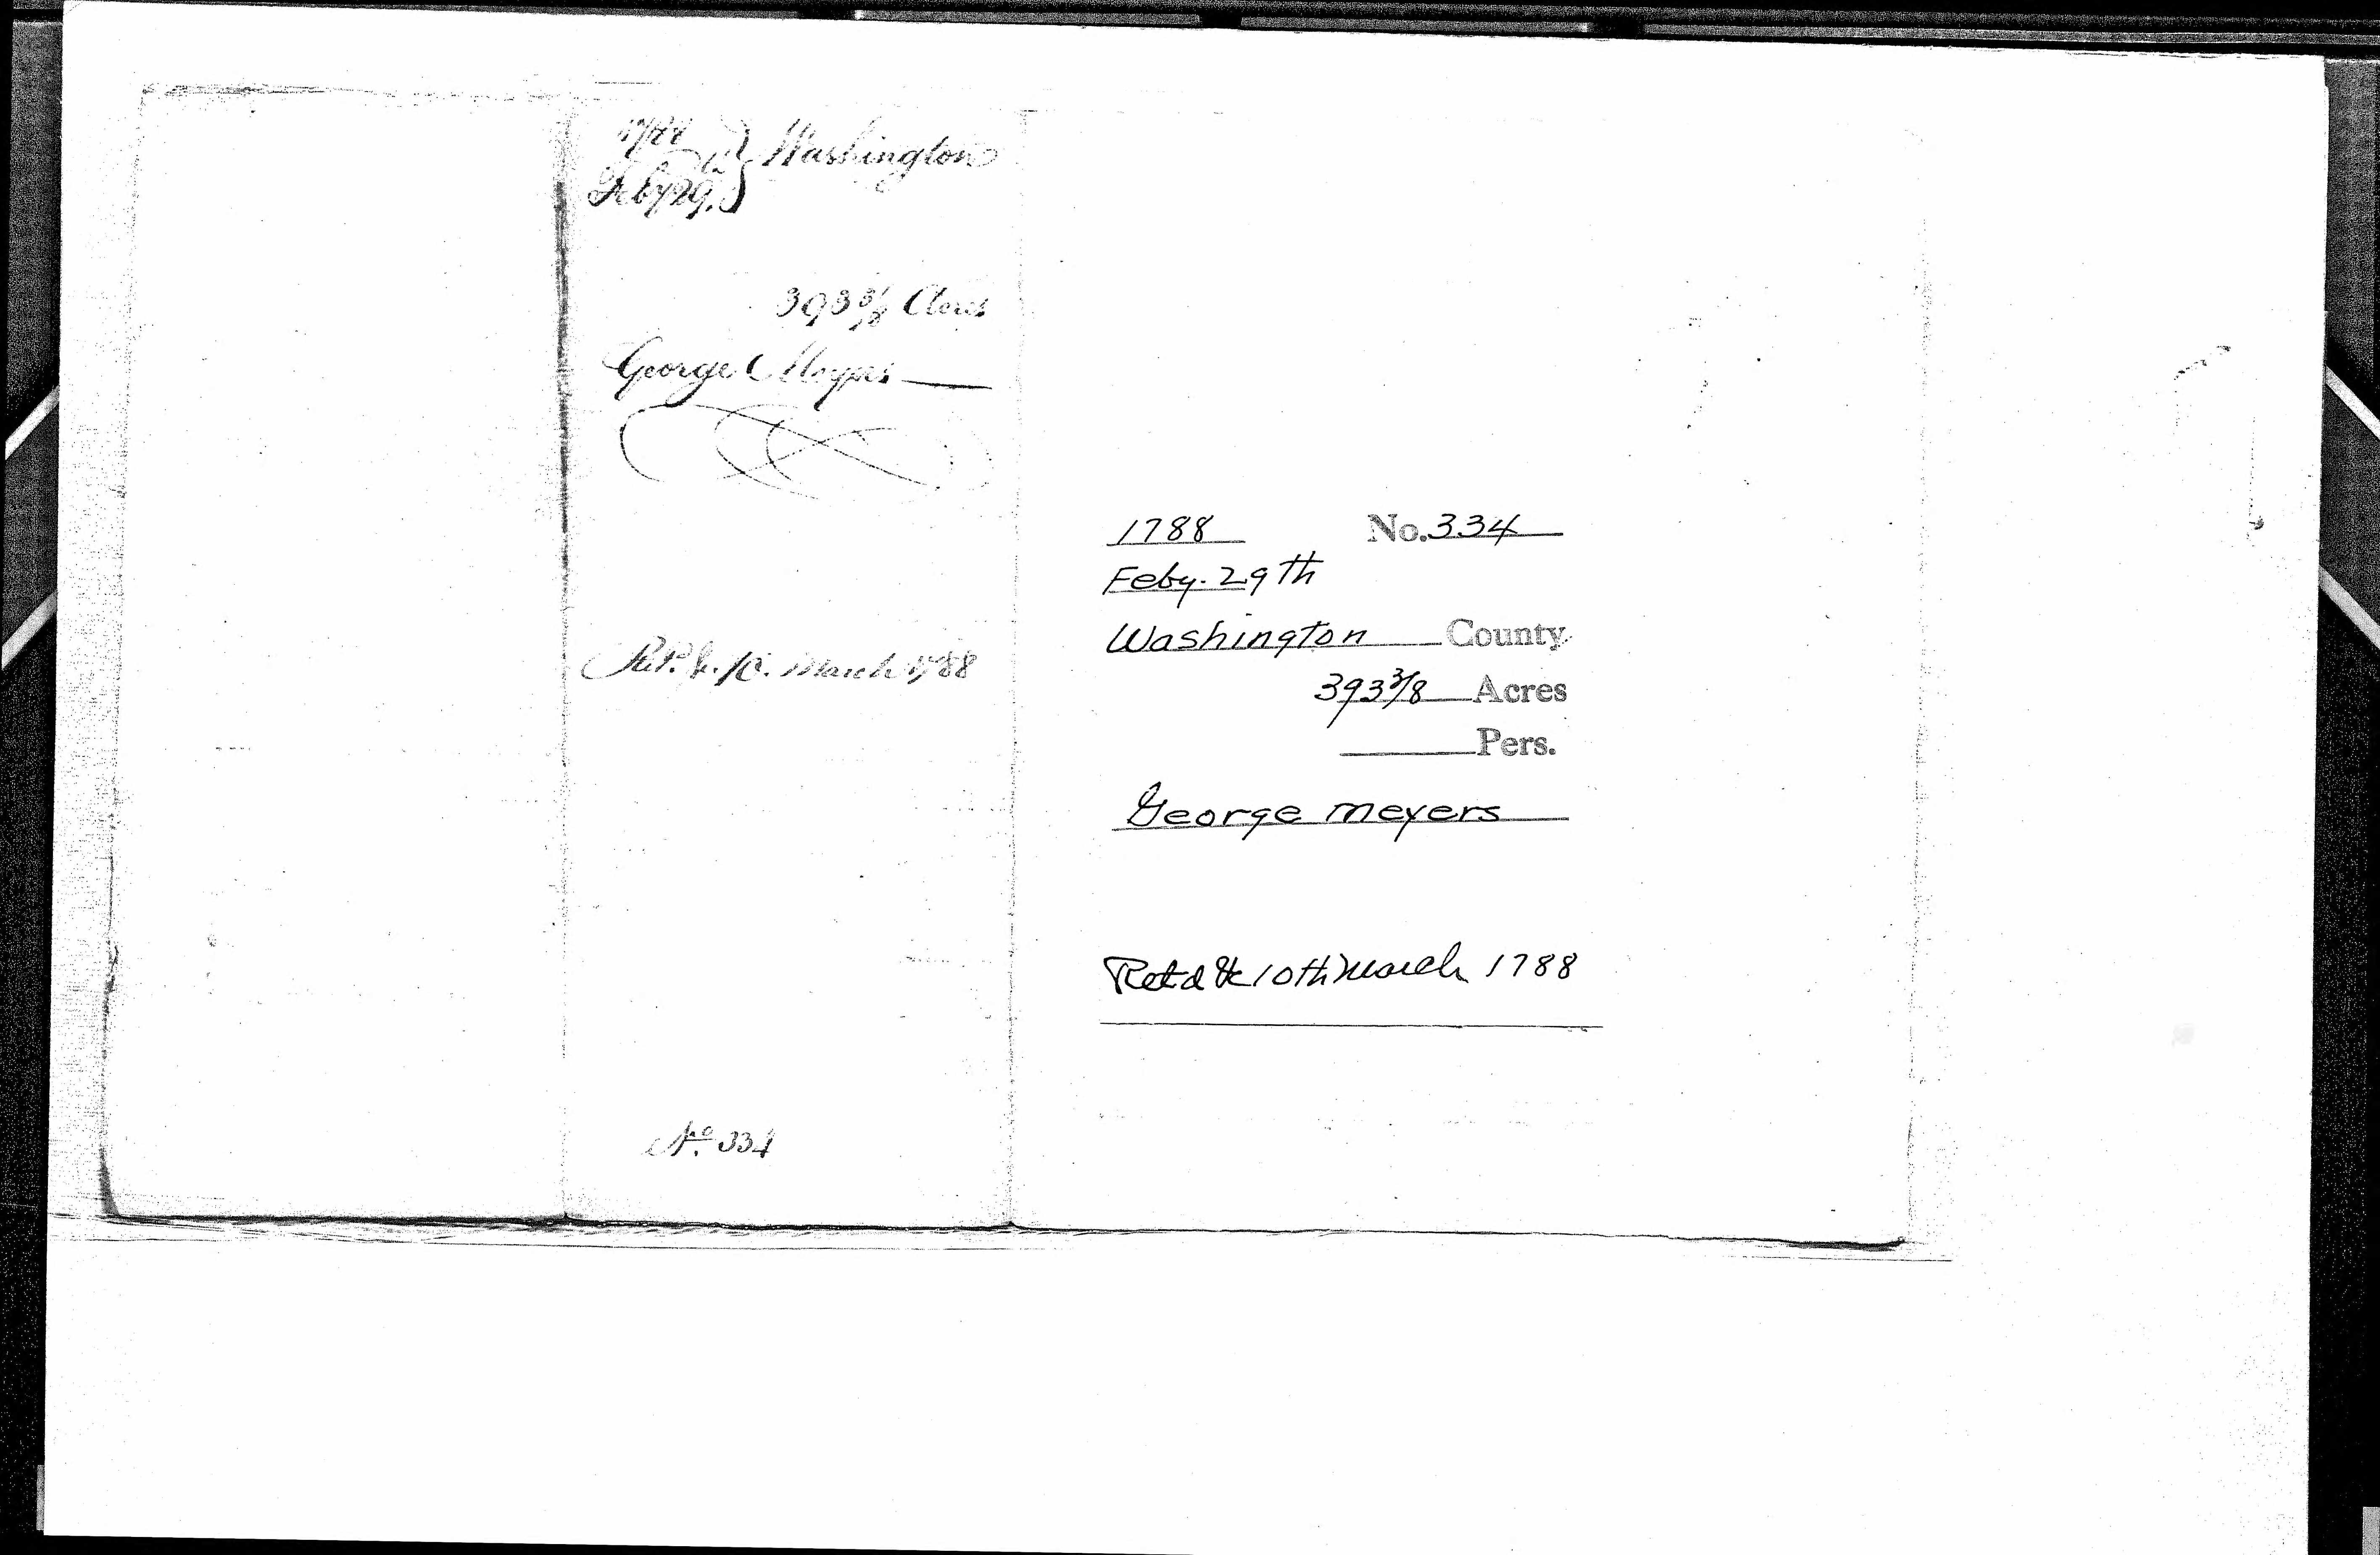 1788
Feby 29th } Washington
393 3/8 Acres
George Meyers
Retd &c. 10. March 1788
No. 334
1788 No. 334
Feby. 29th
Washington County
393 3/8 Acres
Pers.
George Meyers
Retd &c 10th March 1788